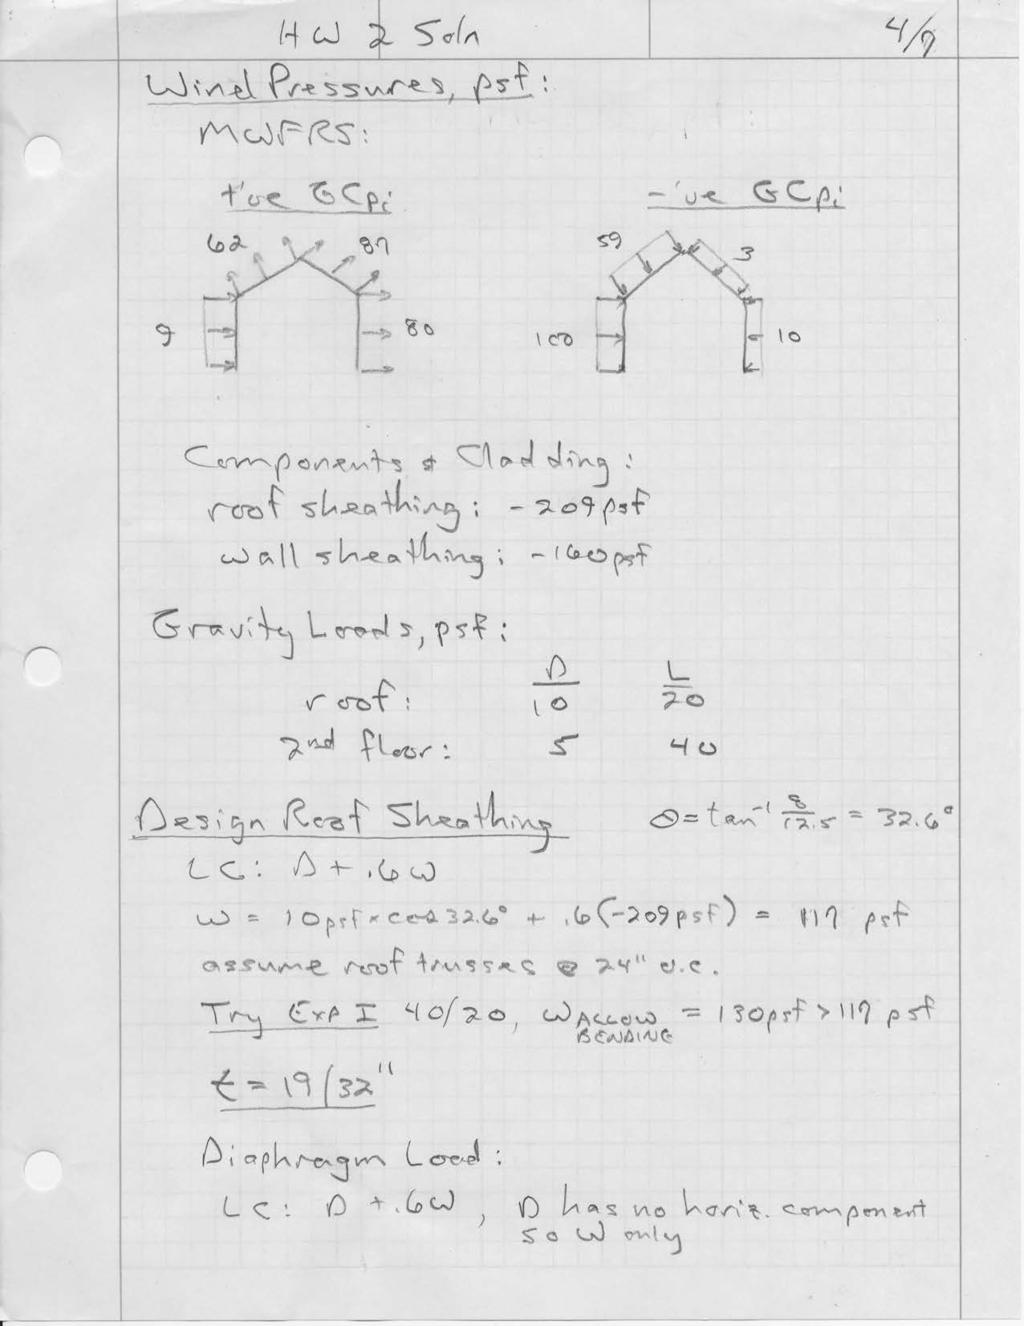 HW 2 Soln 4/7
Wind Pressures, psf:
MWFRS:
+'ve GCpi -'ve GCpi
62 87 59 3
9 80 100 10
Components & Cladding:
roof sheathing: -209psf
wall sheathing: -160psf
Gravity Loads, psf:
D L
roof: 10 20
2nd floor: 5 40
Design Roof Sheathing θ = tan⁻¹ 8/12.5 = 32.6°
LC: D + .6W
w = 10psf × cos 32.6° + .6(-209psf) = 117 psf
assume roof trusses @ 24" o.c.
Try Exp I 40/20, w ALLOW BENDING = 130psf > 117 psf
t = 19/32"
Diaphragm Load:
LC: D + .6W, D has no horiz. component
so W only